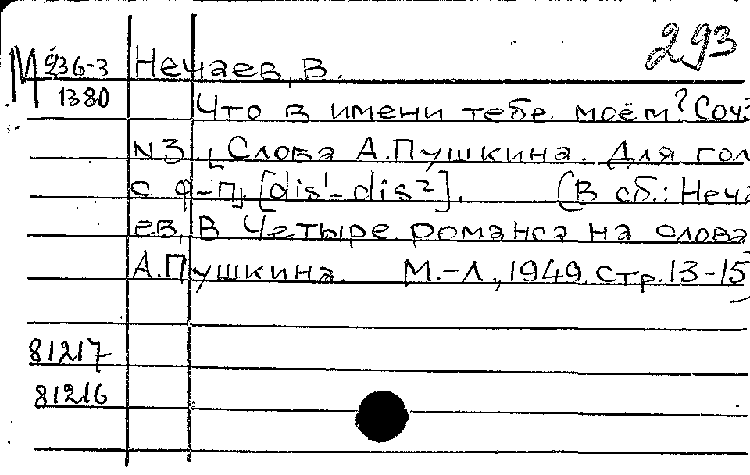 293
М 236-3 Нечаев, В.
1380 Что в имени тебе моём? Соч.
N3. [Слова А.Пушкина. Для гол.
с ф-п] [dis¹-dis²]. (В сб.: Неча
ев, В Четыре романса на слова
А.Пушкина. М.-Л., 1949. стр.13-15)
81217
81216